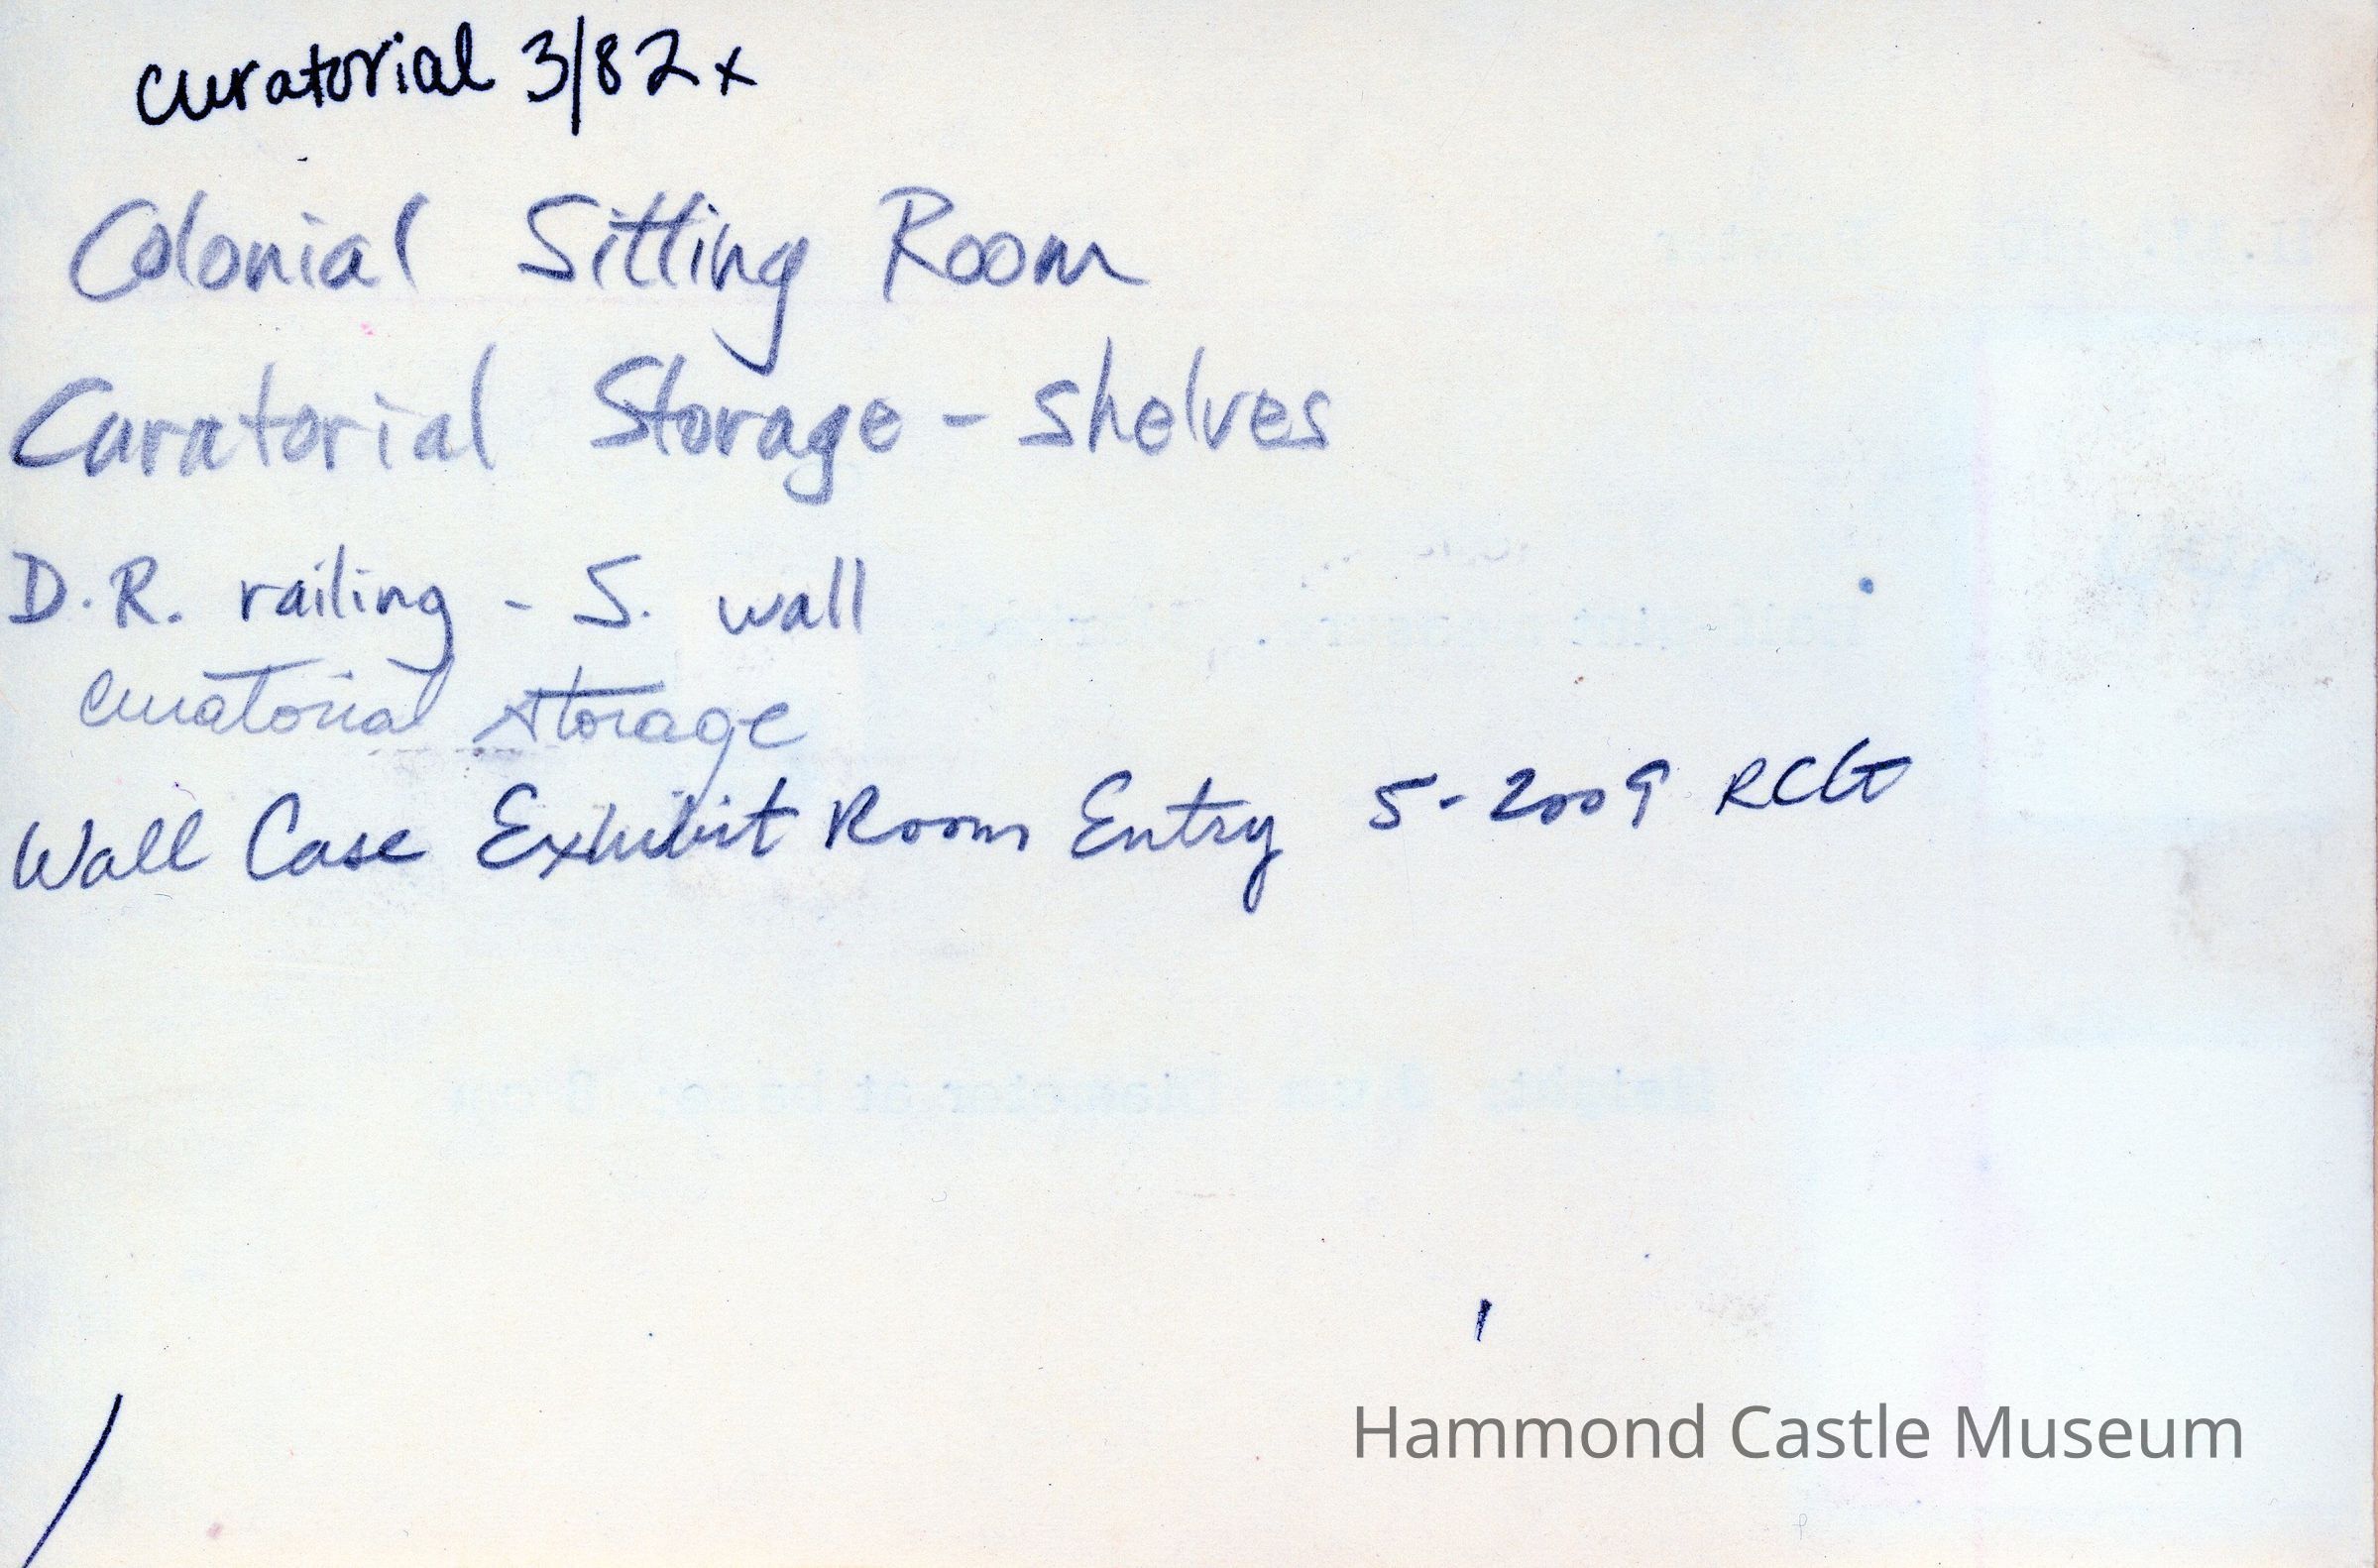 curatorial 3/82 x
Colonial Sitting Room
Curatorial Storage - shelves
D.R. railing - S. wall
curatorial storage
Wall Case Exhibit Room Entry 5-2009 RCG
Hammond Castle Museum